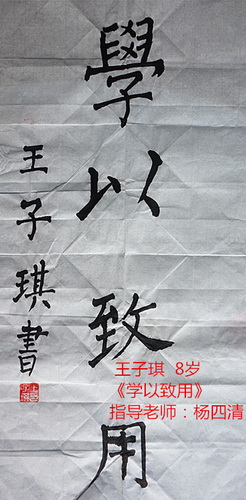 學以致用
王子琪書
王子琪 8岁
《学以致用》
指导老师：杨四清